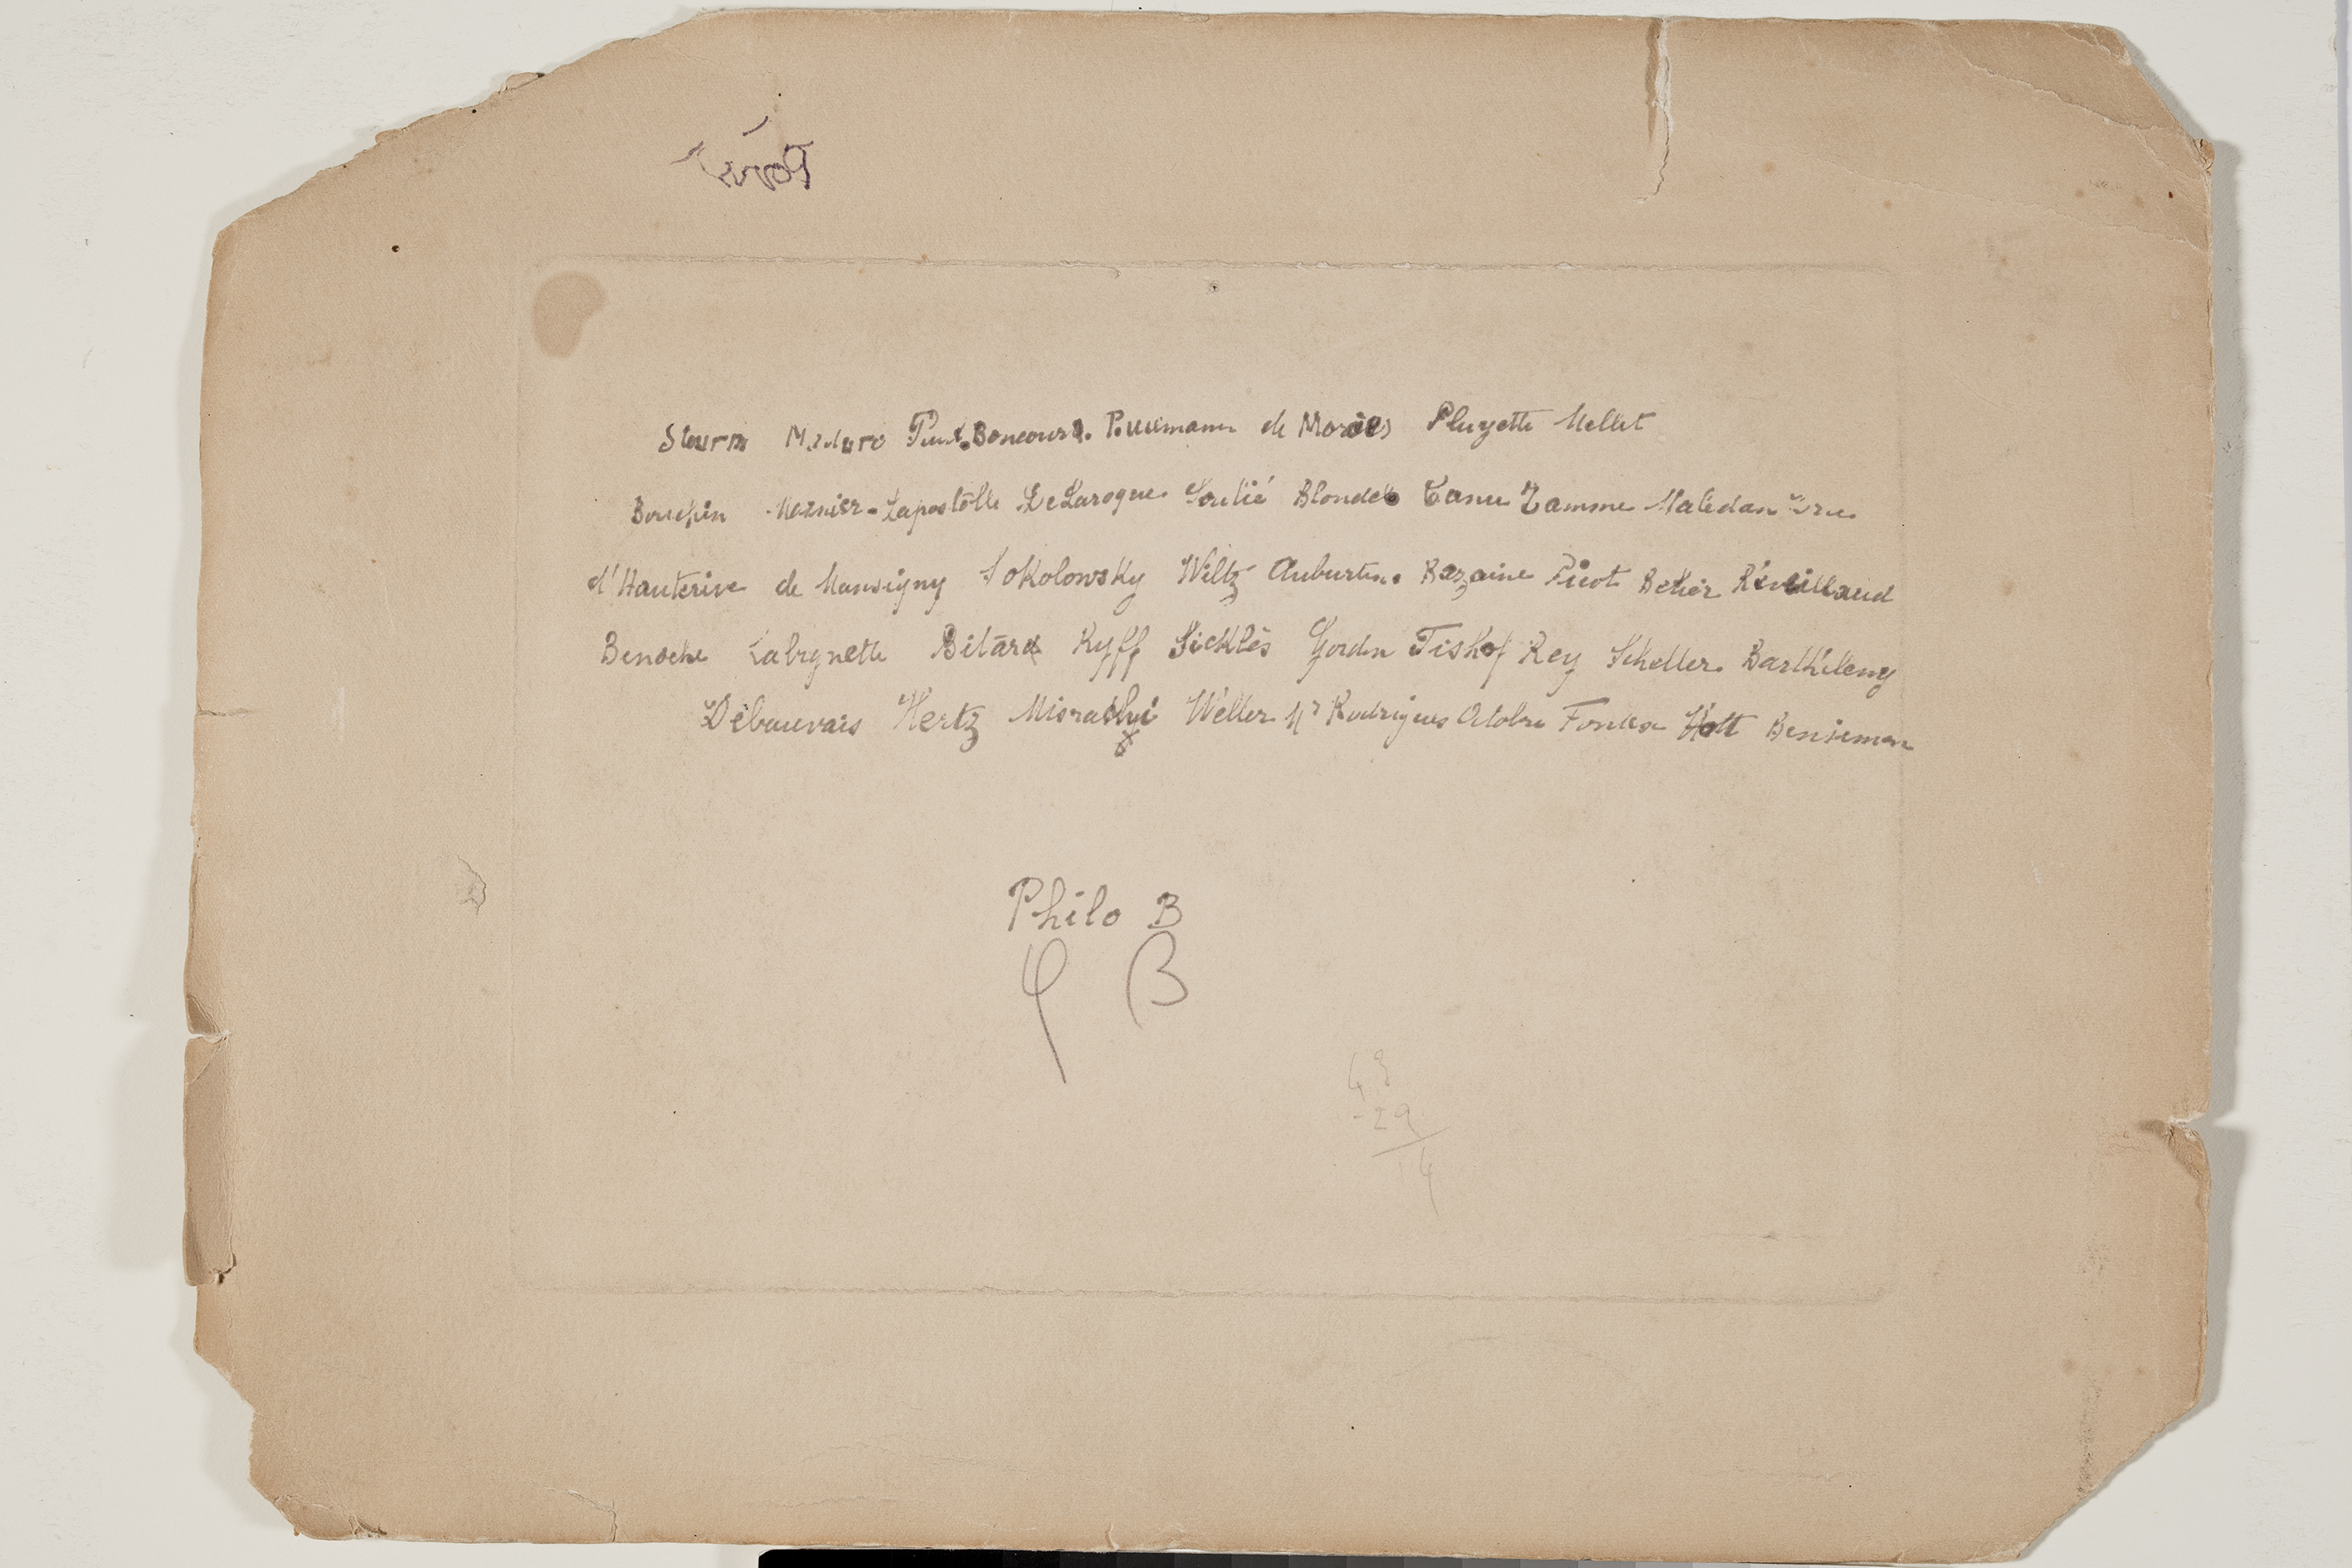 Sturm Maduro Paul-Boncour. de Morès Pluyette Mellet
Bouchin Marnier-Lapostolle De Laroque Soulié Blondel Canu Tamme Malédan
d'Hauterive de Monsigny Sokolowsky Wiltz Auburtin. Bazaine Picot Behier Réveillaud
Benoche Labrynette Bitard Ryff Sicklès Gordn Tishof Rey Scheller Barthélemy
Débauvais Hertz Misrachi Weller Mr Rodrigues Octobre Hott Bensiman
Philo B
φ β
43
-29
14